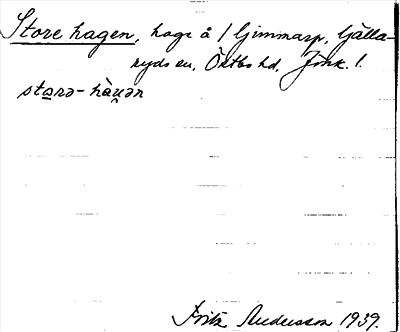 Store hagen, hage å / Gimmarp, Källa-
ryds sn, Östbo hd, Jönk. l.
storə-hàųən
Fritz Andersson 1939.